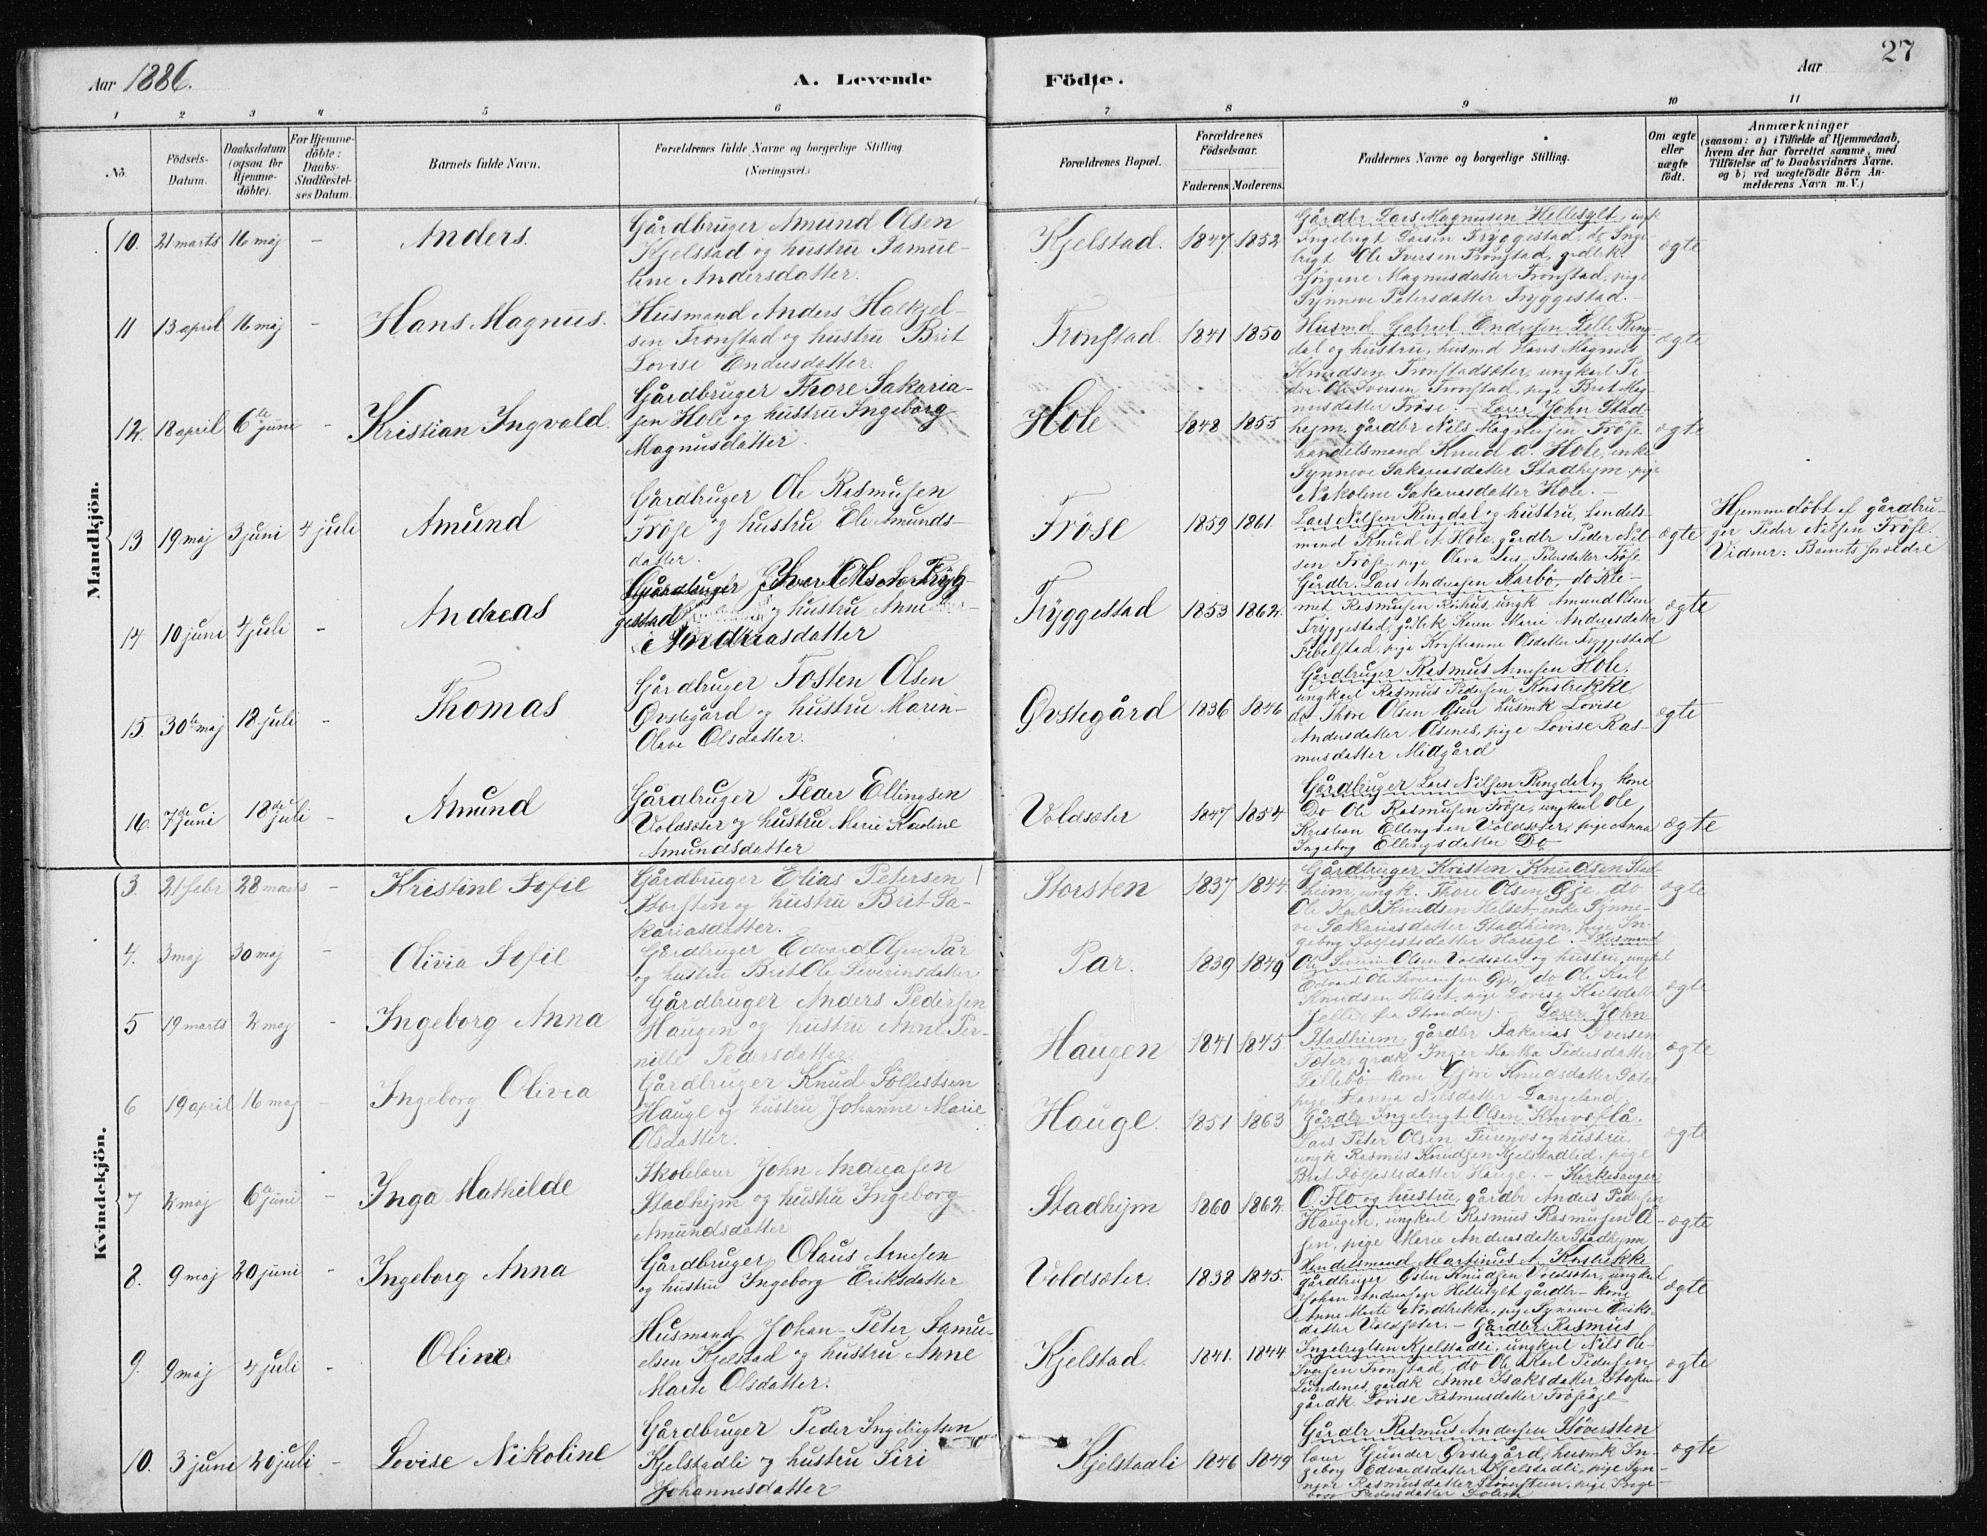 Aar 1886.
A. Levende
Födte.
Aar
27
1 2 3 4 5 6 7 8 9 10 11
No.
Födsels-Datum.
Daabsdatum (ogsaa for Hjemme-döbte).
For Hjemme-döbte: Daabs-Stadfæstelses Datum.
Barnets fulde Navn.
Forældrenes fulde Navne og borgerlige Stilling (Næringsvei.)
Forældrenes Bopæl.
Forældrenes Födselsaar.
Faderens. Moderens.
Faddernes Navne og borgerlige Stilling.
Om ægte eller uægte födt.
Anmærkninger
(saasom: a) i Tilfælde af Hjemmedaab, hvem der har forrettet samme, med Tilföielse af to Daabsvidners Navne. og b) ved uægtefödte Börn Anmelderens Navn m. V.)
Mandkjön.
10. 21 marts 16 maj - Anders.
Gårdbruger Amund Olsen
Kjelstad og hustru Samue-
line Andersdatter.
Kjelstad. 1847 1852
Gårdbr Lars Magnusen Hellesylt, ungk
Ingebrigt Larsen Tryggestad, do Inge-
brigt Ole Iversen Tronstad, grdbrk
Jörgine Magnusdatter Tronstad, pige
Synneve Petersdatter Tryggestad.
ægte
11 13 april 16 maj - Hans Magnus.
Husmand Anders Halkjel-
sen Tronstad og hustru Brit
Lovise Endresdatter.
Tronstad. 1841 1850
Husmd Gabriel Endresen Lille Ring-
dal og hustru, husmd Hans Magnus
Knudsen Tronstadsæter, ungkarl Pe-
der Ole Iversen Tronstad, pige Brit Mag-
nusdatter Fröse.
ægte
12. 18 april 6te juni - Kristian Ingvald.
Gårdbruger Thore Sakaria-
sen Hole og hustru Ingeborg
Magnusdatter.
Hole 1848 1855
Lærer John Stad-
hejm, gårdbr Nils Magnusen Fröse
handelsmand Knud A. Hole, enke
Synneve Sakariasdatter Stadhejm, pige
Nikoline Sakariasdatter Hole.
ægte
13 19 maj 3 juni 4 juli Amund
Gårdbruger Ole Rasmusen
Fröse og hustru Eli Amunds-
datter.
Fröse 1859 1861.
Lars Nilsen Ringdal og hustru, handels-
mand Knud A. Hole, gårdbr Peder Nil-
sen Fröse, pige Oluva Petersdatter Fröse
ægte
Hjemmedöbt af gårdbru-
ger Peder Nilsen Fröse.
Vidner: Barnets forældre
14 10 juni 4 juli - Andreas
Gårdbruger Iver Olsen Tryg-
gestad og hustru Anne
Andreasdatter
Tryggestad 1853 1862.
Gårdbr. Lars Andreasen Karbö, do Kle-
met Rasmusen, ungk Amund Olsen
Tryggestad, gårdbrk Karen Marie Andreasdatter
Fivelstad, pige Kristianne Olsdatter Tryggestad
ægte
15. 30te maj 18 juli - Thomas
Gårdbruger Tosten Olsen
Ovstegård og hustru Maren-
Oluve Olsdatter.
Ovstegård 1836 1846
Gårdbruger Rasmus Arnesen Hole,
ungkarl Rasmus Pedersen Korsbrekke
do Thore Olsen Åsen husmk Lovise
Andersdatter Åsenes, pige Lovise Ras-
musdatter Midgård
ægte
16. 7de juni 18de juli - Amund
Gårdbruger Peder Ellingsen
Voldsæter og hustru Marie Karoline
Amundsdatter
Voldsæter 1847 1854
Gårdbruger Lars Nilsen Ringdal, kone
Do Ole Rasmusen Fröse, ungkarl Ole
Kristian Ellingsen Voldsæter, pige Anna
Ingeborg Ellingsdatter Do
ægte
Kvindekjön.
3. 21 febr 28 marts - Kristine Sofie
Gårdbruger Elias Petersen
Storsten og hustru Brit Sa-
kariasdatter.
Storsten 1837 1844.
Gårdbruger Kristen Knudsen Stad-
heim, ungk. Thore Olsen Gje, do
Ole Karl Knudsen Helset, enke Synne-
ve Sakariasdatter Stadheim, pige In-
geborg Sölfestsdatter Hauge.
ægte
4. 3 maj 30 maj Olivia Sofie
Gårdbruger Edvard Olsen Par
og hustru Brit Ole Severinsdatter
Par. 1839 1849
Husmand
Ole Severin Olsen Voldsæter og hustru, ungkarl
Edvard Ole Severinsen Gje, do Ole Karl
Knudsen Helset, pige Lovise Karlsdatter
Jelle (fra Stranden).
ægte
5 19 marts 2 maj - Ingeborg Anna
Gårdbruger Anders Pedersen
Haugen og hustru Anne Per-
nille Pedersdatter.
Haugen 1841 1845
Lærer John
Stadheim, gårdbr Sakarias Iversen
Sæter, grdk Inger Martha Pedersdatter
Lillebö, kone Gjöri Knudsdatter Sæter
pige Hanna Nilsdatter Langeland.
ægte
6 19 april 16 maj - Ingeborg Olivia
Gårdbruger Knud Sölfestsen
Hauge og hustru Johanne Marie
Olsdatter.
Hauge. 1851 1863
Gårdbr Ingebrigt Olsen Knivsflå.
Lars Peter Olsen Furenæs og hustru,
ungk Rasmus Knudsen Kjelstadlid, pige
Brit Sölfestsdatter Hauge.
ægte
7 2 maj 6te juni - Inga Mathilde
Skolelærer John Andreasen
Stadhejm og hustru Ingeborg
Amundsdatter
Stadhejm 1860 1862.
Kirkesanger
O. Flo og hustru, gårdbr Anders Pedersen
Haugen, ungkarl Rasmus Rasmusen Å-
sen, pige Marie Andreasdatter Stadhejm
ægte
8. 9 maj 20 juni - Ingeborg Anna
Gårdbruger Olaus Arnesen
og hustru Ingeborg Eriksdatter
Voldsæter. 1838 1845.
Handelsmand Martinus A. Korsbrekke
gårdbruger Östen Knudsen Voldsæter, ungkarl
Johan Andreasen Hellesylt, gårdbr-kone
Anne Marte Nordbrekke, pige Synneve Eriks-
datter Voldsæter.
ægte
9. 9 maj 4 juli - Oline
Husmand Johan Peter Samu-
elsen Kjelstad og hustru Anne
Marte Olsdatter.
Kjelstad. 1841. 1844
Gårdbr Rasmus
Ingebrigtsen Kjelstadli, ungkarl Nils Ole
Iversen Tronstad, do Ole Karl Pedersen
Lundenes, gårdk Anne Isaksdatter Storsten
gårdk. Lovise Rasmusdatter Fröseöie
ægte
10. 3 juni 20 juli - Lovise Nikoline
Gårdbruger Peder Ingebrigtsen
Kjelstadli og hustru Siri
Johannesdatter
Kjelstadli 1846 1849
Gårdbr Rasmus Andersen Stöversten
lærer Gunder Ovstegård, husmk In-
geborg Edvardsdatter Kjelstadli, pige Syn-
növe Rasmusdatter Störersten, pige Inge-
borg Pedersdatter Solem
ægte